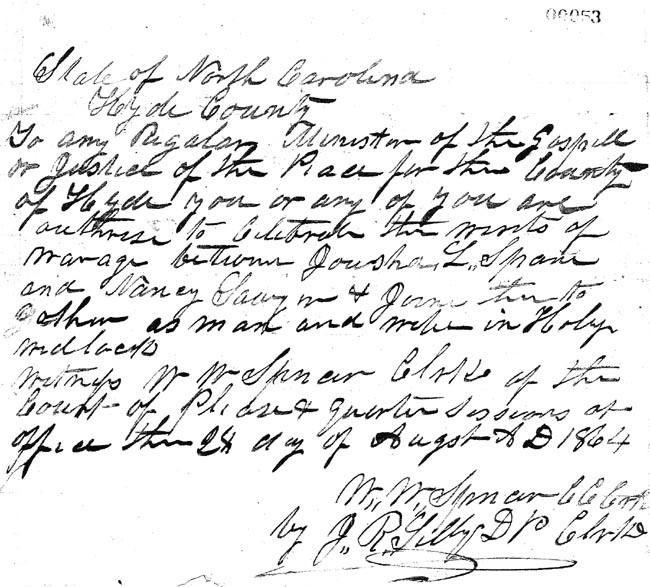 00053
State of North Carolina
Hyde County
To any Regalar Minister of the Gospill
or Justice of the Peace for the County
of Hyde you or any of you are
authrise to Celebrate the writs of
marage between Jousha L,, Spane
and Nancy Sawyer & Joine the to
gether as man and wife in Holy
widlock
witness W W Spencer Clrke of the
Court of Please & quarter sessions at
office the 28 day of Augst A D 1864
W,, W,, Spncer C C Clrk
by J,, R,, D P Clrke